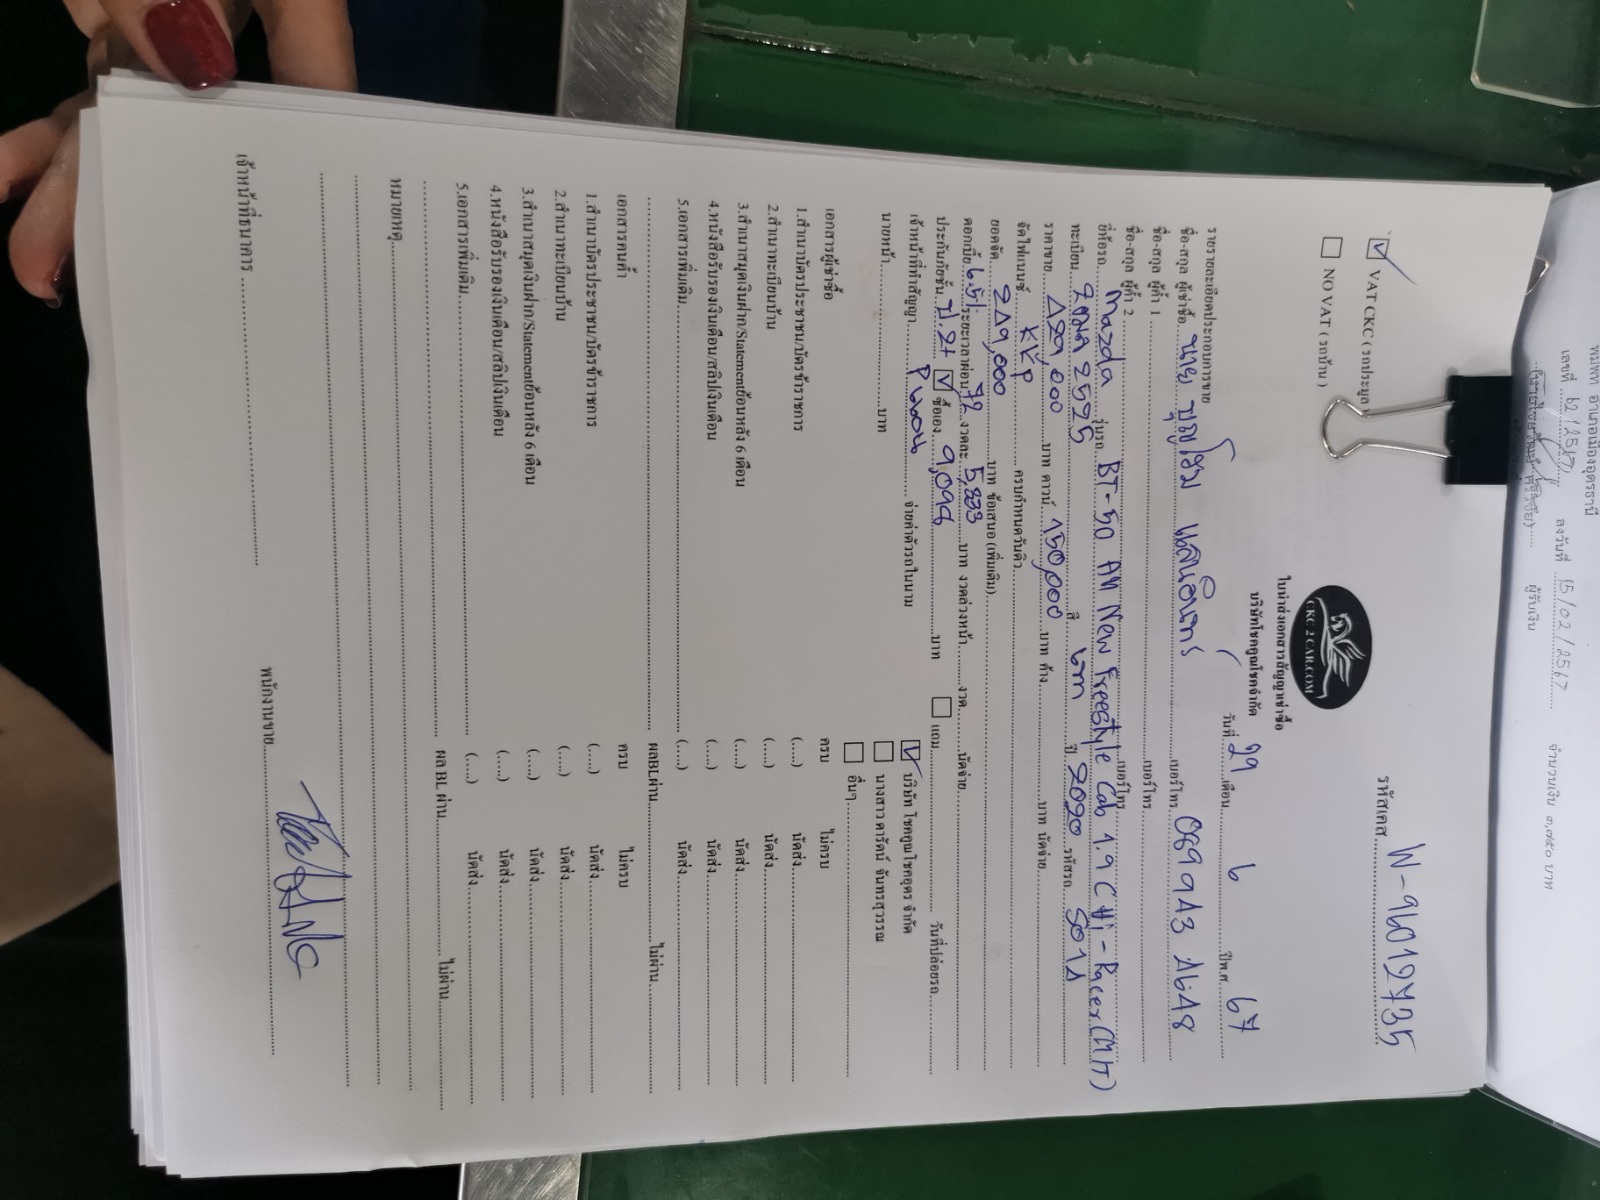 พมพท อำเภอเมืองอุดรธานี
เลขที่ 62/2567 ลงวันที่ 15/02/2567 จำนวนเงิน ๓,๗๕๐ บาท
ผู้รับเงิน
รหัสเคส W-96012735
☑ VAT CKC ( รถประมูล )
☐ NO VAT ( รถบ้าน )
CKC 2 CAR.COM
ใบนำส่งเอกสารสัญญาเช่าซื้อ
บริษัทโชคคูณโชคจำกัด
วันที่ 29 เดือน 6 ปีพ.ศ. 67
รายรายละเอียดประกอบการขาย
ชื่อ-สกุล ผู้เช่าซื้อ นาย บุญโฮม เบอร์โทร
ชื่อ-สกุล ผู้ค้ำ 1 เบอร์โทร
ชื่อ-สกุล ผู้ค้ำ 2 เบอร์โทร
ยี่ห้อรถ Mazda รุ่นรถ BT-50 All New Freestyle Cab 1.9 C Hi-Racer (M/T)
ทะเบียน สี เทา ปี 2020 รหัสรถ
ราคาขาย บาท ดาวน์ 150,000 บาท ค้าง บาท นัดจ่าย
จัดไฟแนนซ์ KKP ครบกำหนดวันคิว
ยอดจัด บาท ข้อเสนอ (เพิ่มเติม)
ดอกเบี้ย 6.5% ระยะเวลาผ่อน 72 งวดละ 5,833 บาท งวดล่วงหน้า งวด นัดจ่าย
ประกันภัยชั้น ป.2+ ☑ ซื้อเอง 9,099 บาท ☐ แถม วันที่ปล่อยรถ
เจ้าหน้าที่ทำสัญญา จ่ายค่าตัวรถในนาม ☑ บริษัท โชคคูณโชคอุดร จำกัด
นายหน้า บาท ☐ นางสาว ดารัตน์ จันทรสุวรรณ
☐ อื่นๆ
เอกสารผู้เช่าซื้อ ครบ ไม่ครบ
1.สำเนาบัตรประชาชน/บัตรข้าราชการ (....) นัดส่ง
2.สำเนาทะเบียนบ้าน (....) นัดส่ง
3.สำเนาสมุดเงินฝาก/Statementย้อนหลัง 6 เดือน (....) นัดส่ง
4.หนังสือรับรองเงินเดือน/สลิปเงินเดือน (....) นัดส่ง
5.เอกสารเพิ่มเติม (....) นัดส่ง
ผลBLผ่าน ไม่ผ่าน
เอกสารคนค้ำ ครบ ไม่ครบ
1.สำเนาบัตรประชาชน/บัตรข้าราชการ (....) นัดส่ง
2.สำเนาทะเบียนบ้าน (....) นัดส่ง
3.สำเนาสมุดเงินฝาก/Statementย้อนหลัง 6 เดือน (....) นัดส่ง
4.หนังสือรับรองเงินเดือน/สลิปเงินเดือน (....) นัดส่ง
5.เอกสารเพิ่มเติม (....) นัดส่ง
ผล BL ผ่าน ไม่ผ่าน
หมายเหตุ
เจ้าหน้าที่ธนาคาร พนักงานขาย